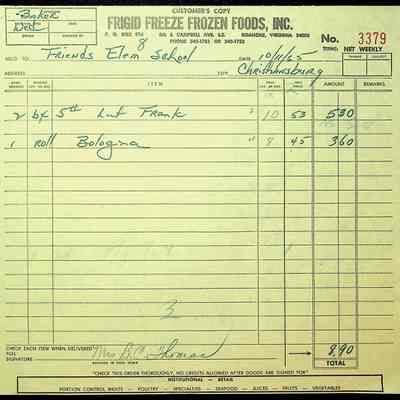 CUSTOMER'S COPY
FRIGID FREEZE FROZEN FOODS, INC.
PHONE 345-1733 OR 345-1732
ROANOKE, VIRGINIA
No. 3379
TERMS: NET WEEKLY
Friends Elem School
DATE 10/11/65
ADDRESS
CITY Christiansburg
ITEM AMOUNT REMARKS
2 bx 5th Frank 10 53 530
1 roll Bologna 8 45 360
3
CHECK EACH ITEM WHEN DELIVERED
FULL SIGNATURE Mrs B. C. Thomas 8.90
TOTAL
"CHECK THIS ORDER THOROUGHLY, NO CREDITS ALLOWED AFTER GOODS ARE SIGNED FOR"
INSTITUTIONAL - RETAIL
PORTION CONTROL MEATS — POULTRY — SPECIALTIES — SEAFOOD — JUICES — FRUITS — VEGETABLES